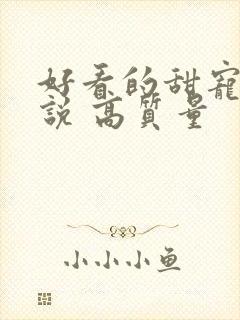 好看的甜宠
說 高質量
小小小鱼